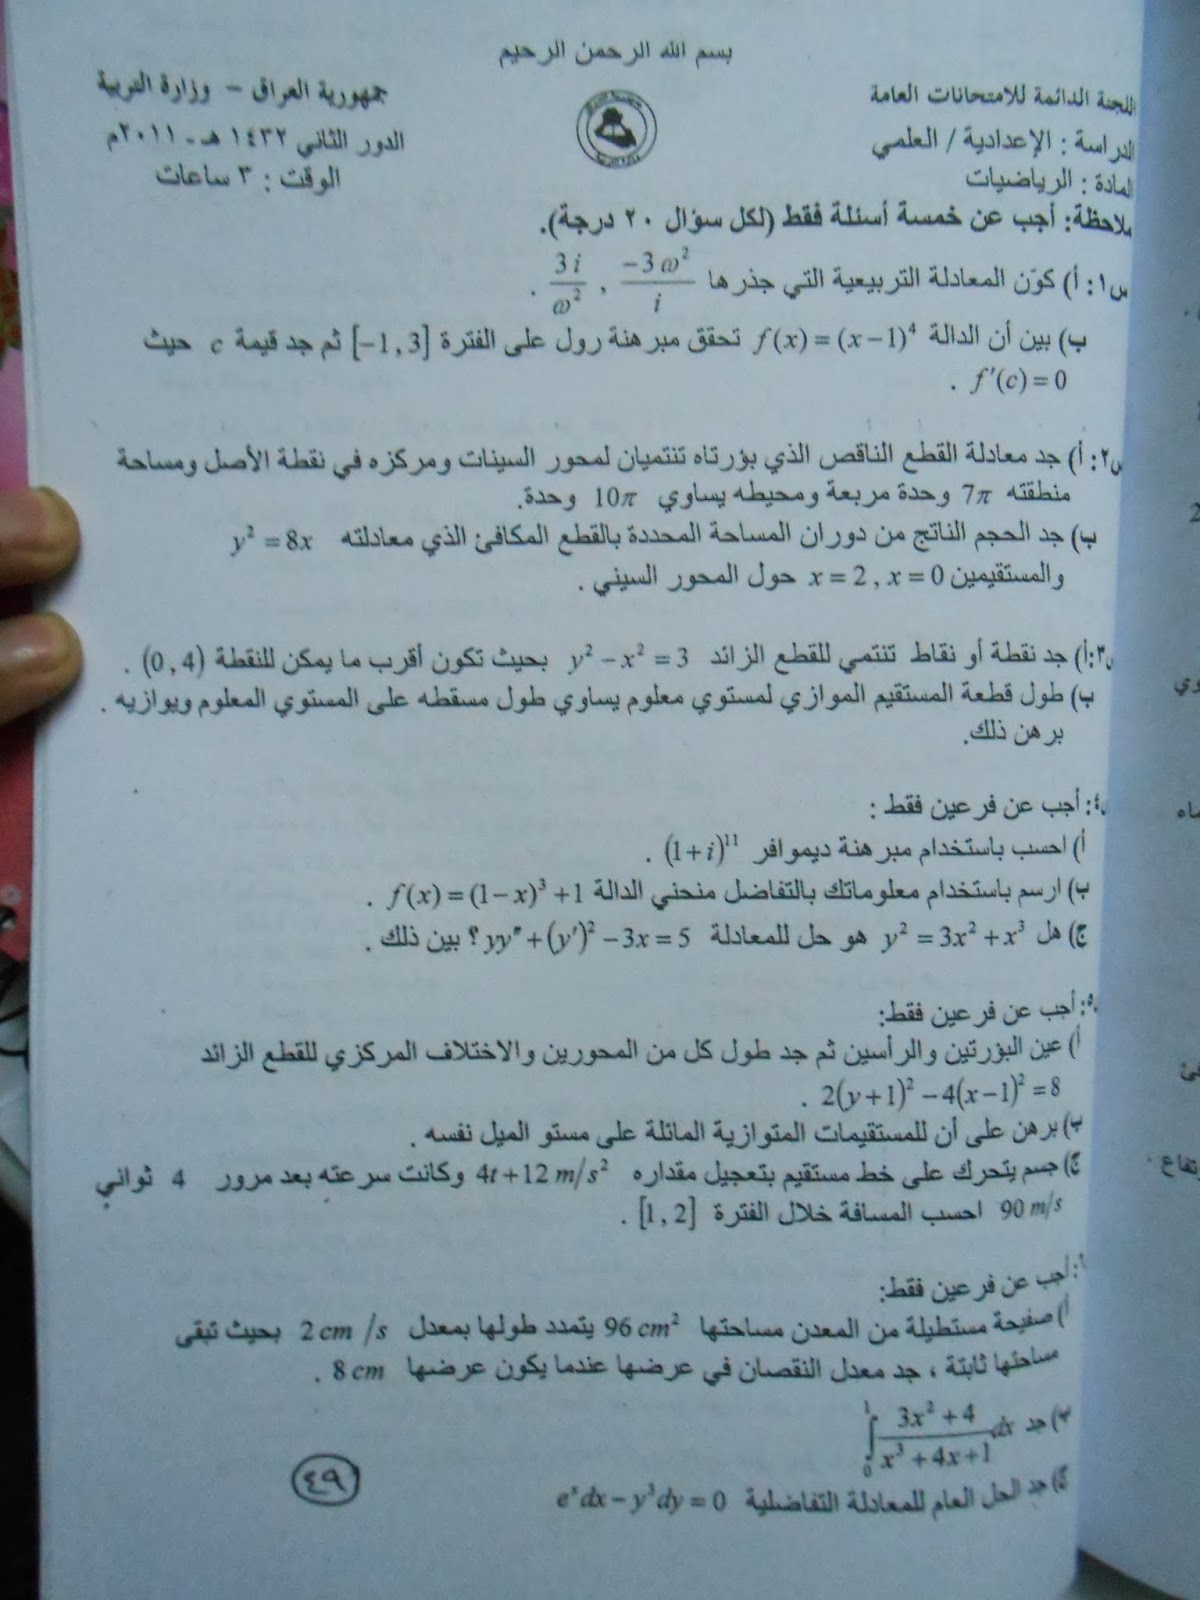 بسم الله الرحمن الرحيم
اللجنة الدائمة للامتحانات العامة
جمهورية العراق - وزارة التربية
الدراسة : الإعدادية / العلمي
الدور الثاني ١٤٣٢ هـ - ٢٠١١م
المادة : الرياضيات
الوقت : ٣ ساعات
ملاحظة: أجب عن خمسة أسئلة فقط (لكل سؤال ٢٠ درجة).
س١: أ) كوّن المعادلة التربيعية التي جذرها \frac{-3ω²}{i} , \frac{3i}{ω²} .
ب) بين أن الدالة f(x) = (x-1)⁴ تحقق مبرهنة رول على الفترة [-1,3] ثم جد قيمة c حيث
f'(c) = 0 .
س٢: أ) جد معادلة القطع الناقص الذي بؤرتاه تنتميان لمحور السينات ومركزه في نقطة الأصل ومساحة
منطقته 7π وحدة مربعة ومحيطه يساوي 10π وحدة.
ب) جد الحجم الناتج من دوران المساحة المحددة بالقطع المكافئ الذي معادلته y² = 8x
والمستقيمين x = 2 , x = 0 حول المحور السيني .
س٣: أ) جد نقطة أو نقاط تنتمي للقطع الزائد y² - x² = 3 بحيث تكون أقرب ما يمكن للنقطة (0,4) .
ب) طول قطعة المستقيم الموازي لمستوي معلوم يساوي طول مسقطه على المستوي المعلوم ويوازيه .
برهن ذلك.
٤: أجب عن فرعين فقط :
أ) احسب باستخدام مبرهنة ديموافر (1+i)¹¹ .
ب) ارسم باستخدام معلوماتك بالتفاضل منحني الدالة f(x) = (1-x)³ +1 .
ج) هل y² = 3x² + x³ هو حل للمعادلة yy″ + (y′)² - 3x = 5 ؟ بين ذلك .
٥: أجب عن فرعين فقط:
أ) عين البؤرتين والرأسين ثم جد طول كل من المحورين والاختلاف المركزي للقطع الزائد
2(y+1)² - 4(x-1)² = 8 .
ب) برهن على أن للمستقيمات المتوازية المائلة على مستو الميل نفسه .
ج) جسم يتحرك على خط مستقيم بتعجيل مقداره 4t+12 m/s² وكانت سرعته بعد مرور 4 ثواني
90 m/s احسب المسافة خلال الفترة [1,2] .
أجب عن فرعين فقط:
أ) صفيحة مستطيلة من المعدن مساحتها 96 cm² يتمدد طولها بمعدل 2 cm/s بحيث تبقى
مساحتها ثابتة ، جد معدل النقصان في عرضها عندما يكون عرضها 8 cm .
ب) جد \int_0^1 \frac{3x²+4}{x³+4x+1} dx
ج) جد الحل العام للمعادلة التفاضلية eˣdx - y³dy = 0
٤٩